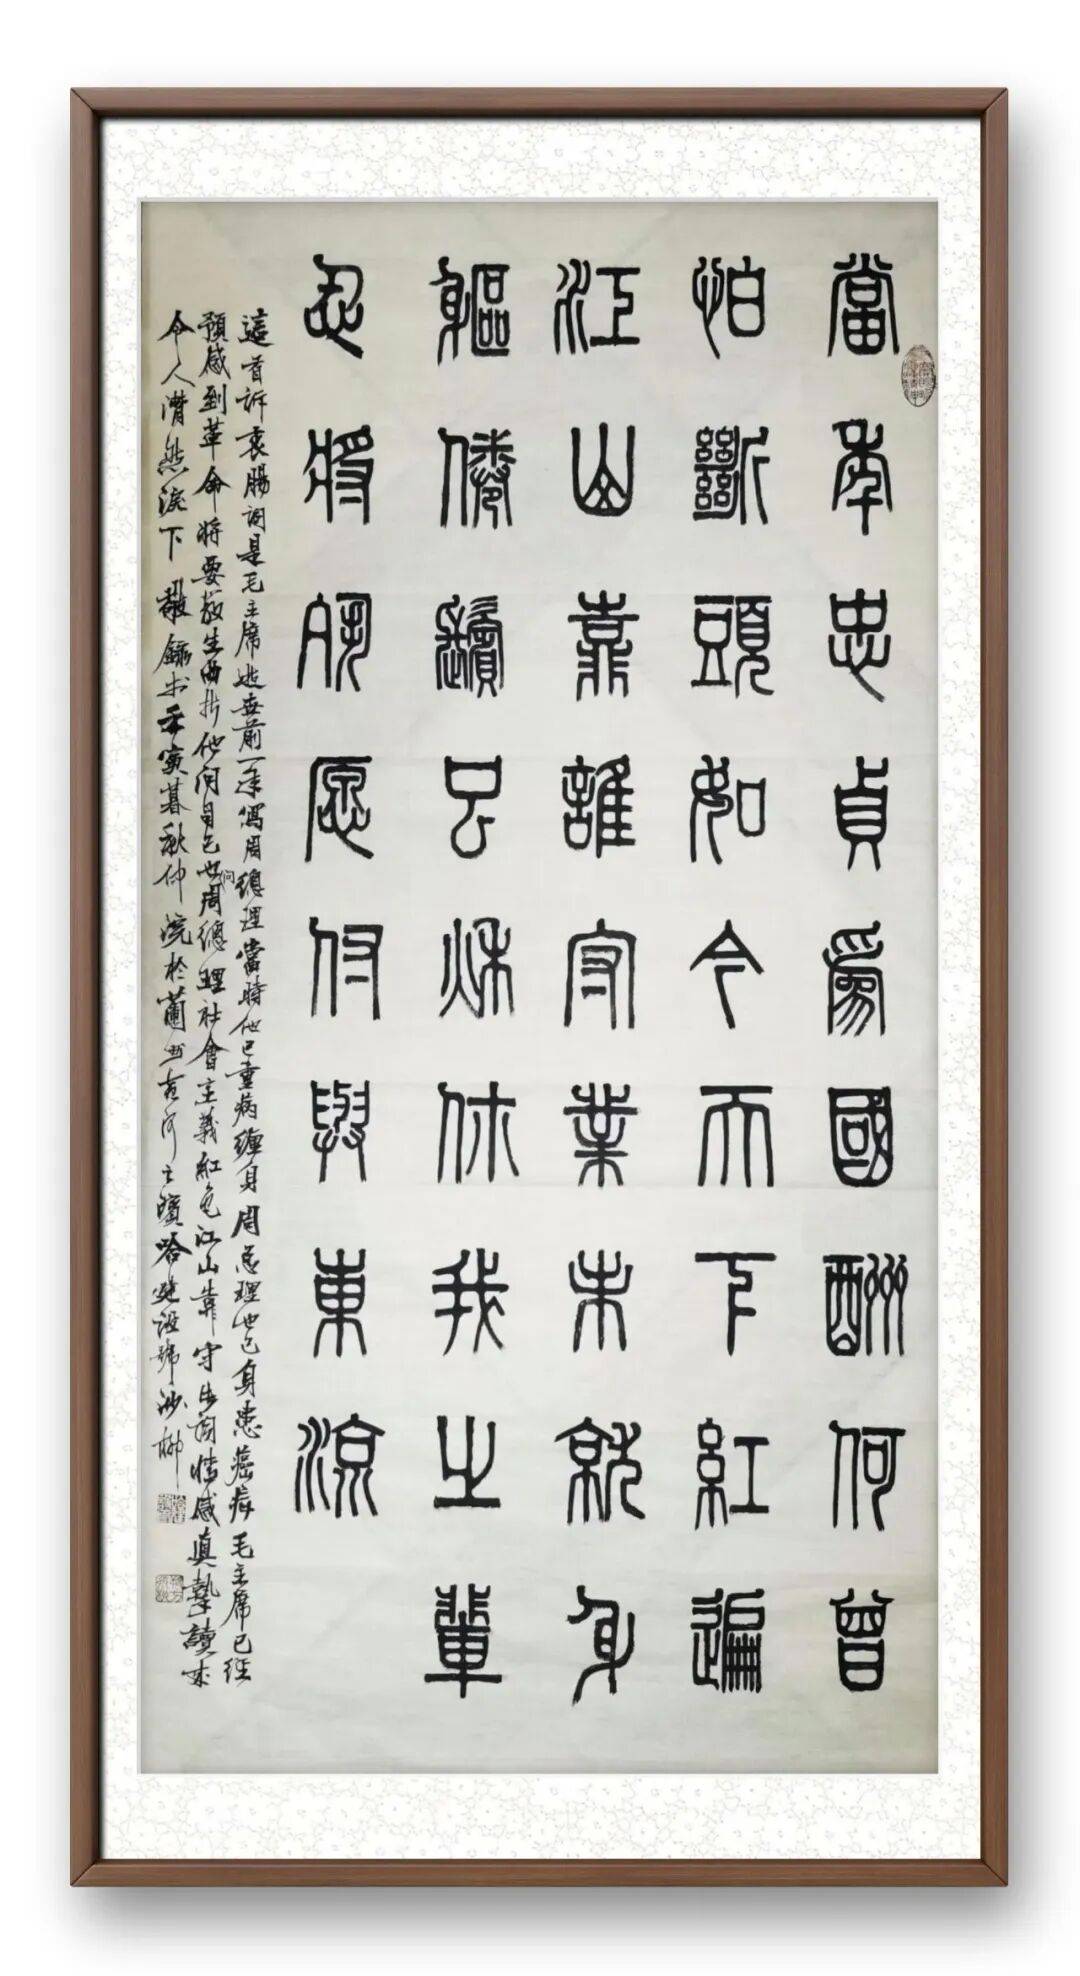 當年忠貞為國酬何曾
怕斷頭如今天下紅遍
江山靠誰守業未就身
軀倦鬢已秋你我之輩
忍將夙愿付與東流
這首訴衷腸詞是毛主席逝世前一年寫周總理當時他已重病纏身周总理也已身患癌病毛主席已經
預感到革命將要發生曲折他问自己也问周總理社會主義紅色江山靠守住詞情感真摯讀來
令人潸然淚下敬錄书壬寅暮秋仲浣於